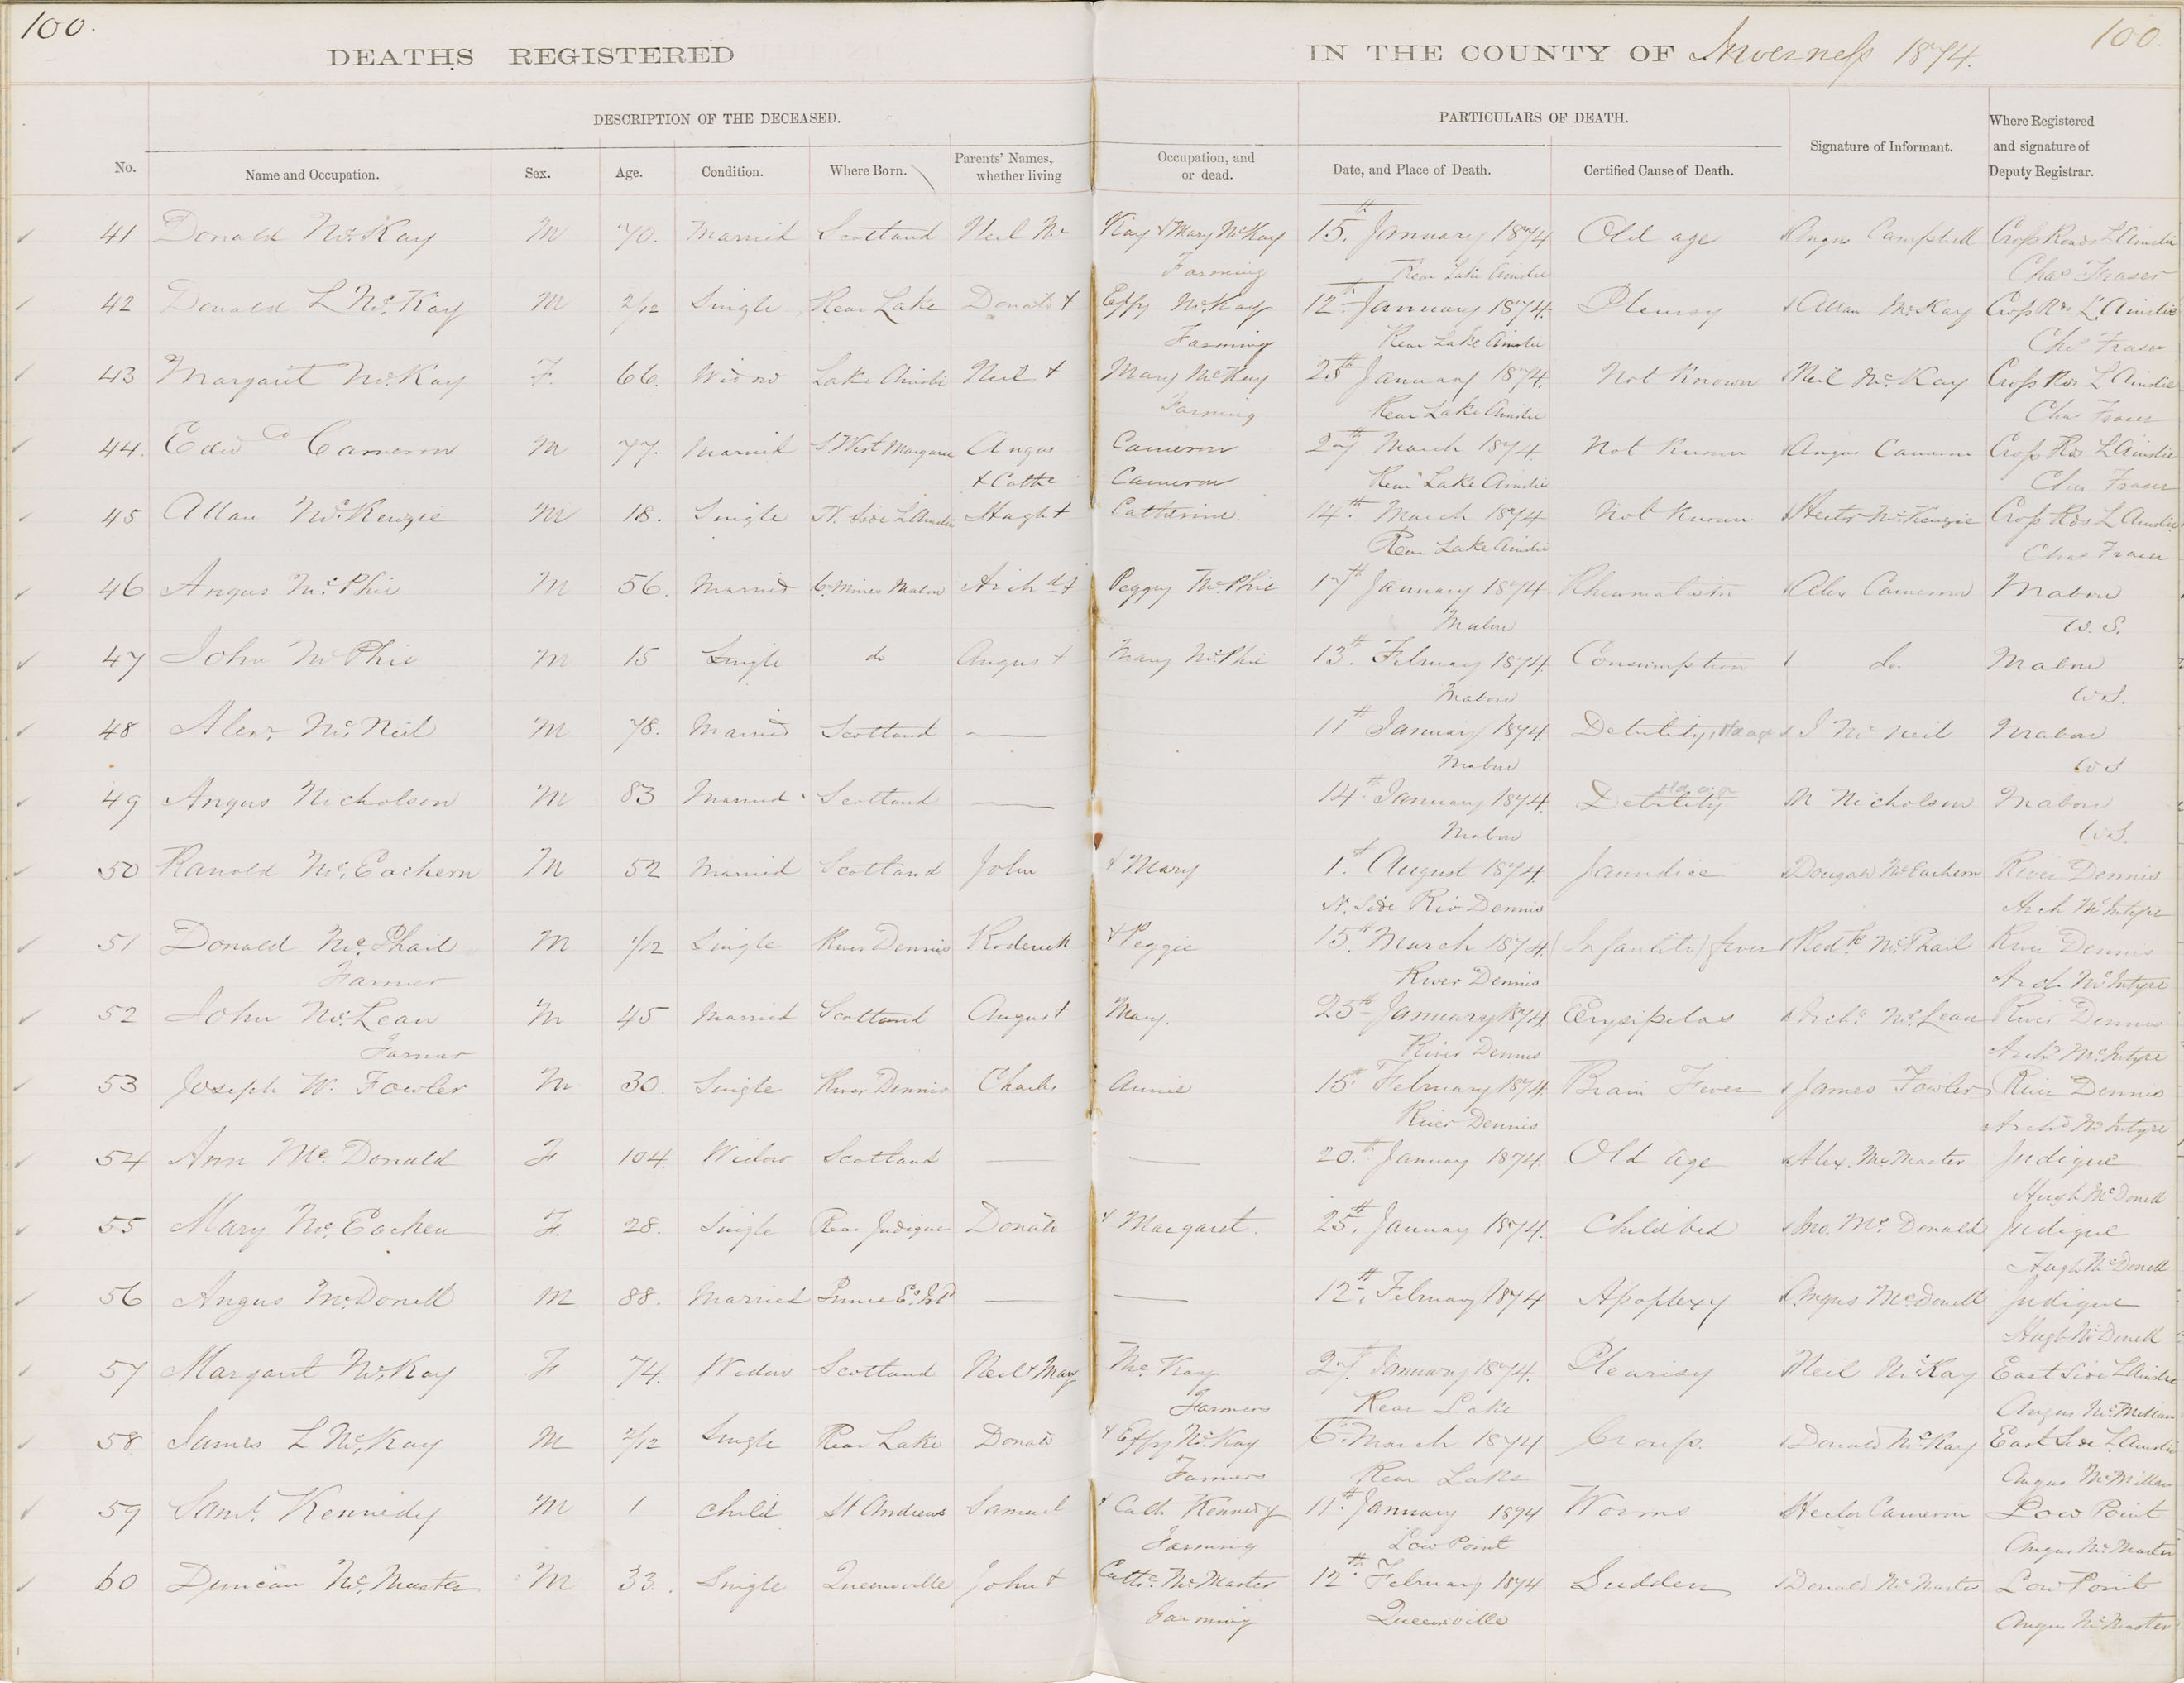 100.
100.
DEATHS REGISTERED IN THE COUNTY OF Inverness 1874.
DESCRIPTION OF THE DECEASED. PARTICULARS OF DEATH. Signature of Informant. Where Registered and signature of Deputy Registrar.
No. Name and Occupation. Sex. Age. Condition. Where Born. Parents' Names, whether living Occupation, and or dead. Date, and Place of Death. Certified Cause of Death.
41 Donald McKay M 70. Married Scotland Neil Mc Kay & Mary McKay 15th January 1874 Old age Angus Campbell Cross Roads L Ainslie
Farming Rear Lake Ainslie Chas Fraser
42 Donald L McKay M 2/12 Single Rear Lake Donald & Effy McKay 12th January 1874. Pleurisy Allan McKay Cross Rds L. Ainslie
Farming Rear Lake Ainslie Chs Fraser
43 Margaret McKay F. 66. Widow Lake Ainslie Neil & Mary McKay 25th January 1874. Not Known Neil McKay Cross Rds L Ainslie
Farming Rear Lake Ainslie Chas Fraser
44. Edwd Cameron M 77. Married S. West Margaree Angus Cameron 27th March 1874. Not Known Angus Cameron Cross Rds L Ainslie
& Cathe Cameron Rear Lake Ainslie Chas Fraser
45 Allan McKenzie M 18. Single N. Side L Ainslie Hugh & Catherine. 14th March 1874 Not Known Hector McKenzie Cross Rds L Ainslie
Rear Lake Ainslie Chas Fraser
46 Angus McPhie M 56. Married C. Mines Mabou Archd & Peggy McPhie 17th January 1874. Rheumatism Alex Cameron Mabou
Mabou W. S.
47 John McPhie M 15 Single do Angus & Mary McPhie 13th February 1874. Consumption do. Mabou
Mabou W S.
48 Alexr McNeil M 78. Married Scotland — 11th January 1874. Debility, Old age J McNeil Mabou
Mabou W S
49 Angus Nicholson M 83 Married Scotland — 14th January 1874. Debility old age N Nicholson Mabou
Mabou W S.
50 Ranold McEachern M 52 Married Scotland John & Mary 1st August 1874. Jaundice Dougald McEachern River Dennis
N. Side Riv Dennis Arch McIntyre
51 Donald McPhail M 1/12 Single River Dennis Roderick & Peggie 15th March 1874. Infantile fever Rodk McPhail River Dennis
Farmer River Dennis Arch McIntyre
52 John McLean M 45 Married Scotland August Mary. 25th January 1874 Erysipelas Archd McLean River Dennis
Farmer River Dennis Archd McIntyre
53 Joseph W. Fowler M 30. Single River Dennis Charles Annie 15th February 1874. Brain Fever James Fowler River Dennis
River Dennis Archd McIntyre
54 Ann McDonald F 104. Widow Scotland — — 20th January 1874. Old Age Alex. McMaster Judique
Hugh McDonell
55 Mary McEachen F. 28. Single Rear Judique Donald & Margaret. 25th January 1874. Childbed Jno. McDonald Judique
Hugh McDonell
56 Angus McDonell M 88. Married Prince E. Isd — — 12th February 1874 Apoplexy Angus McDonell Judique
Hugh McDonell
57 Margaret McKay F 74. Widow Scotland Neil & Mary McKay 27th January 1874. Pleurisy Neil McKay East Side L Ainslie
Farmers Rear Lake Angus McMillan
58. James L McKay M 2/12 Single Rear Lake Donald & Effy McKay 6th March 1874 Croup. Donald McKay East Side L Ainslie
Farmers Rear Lake Angus McMillan
59 Saml. Kennedy M 1 child St Andrews Samuel & Cath Kennedy 11th January 1874 Worms Hector Cameron Low Point
Farming Low Point Angus McMaster
60 Duncan McMaster M 33. Single Queensville John & Cathe McMaster 12th February 1874 Sudden Donald McMaster Low Point
Farming Queensville Angus McMaster